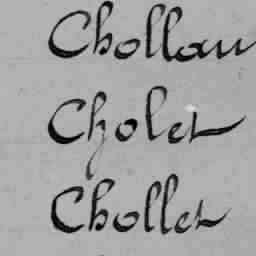 Chollau
Cholet
Chollet